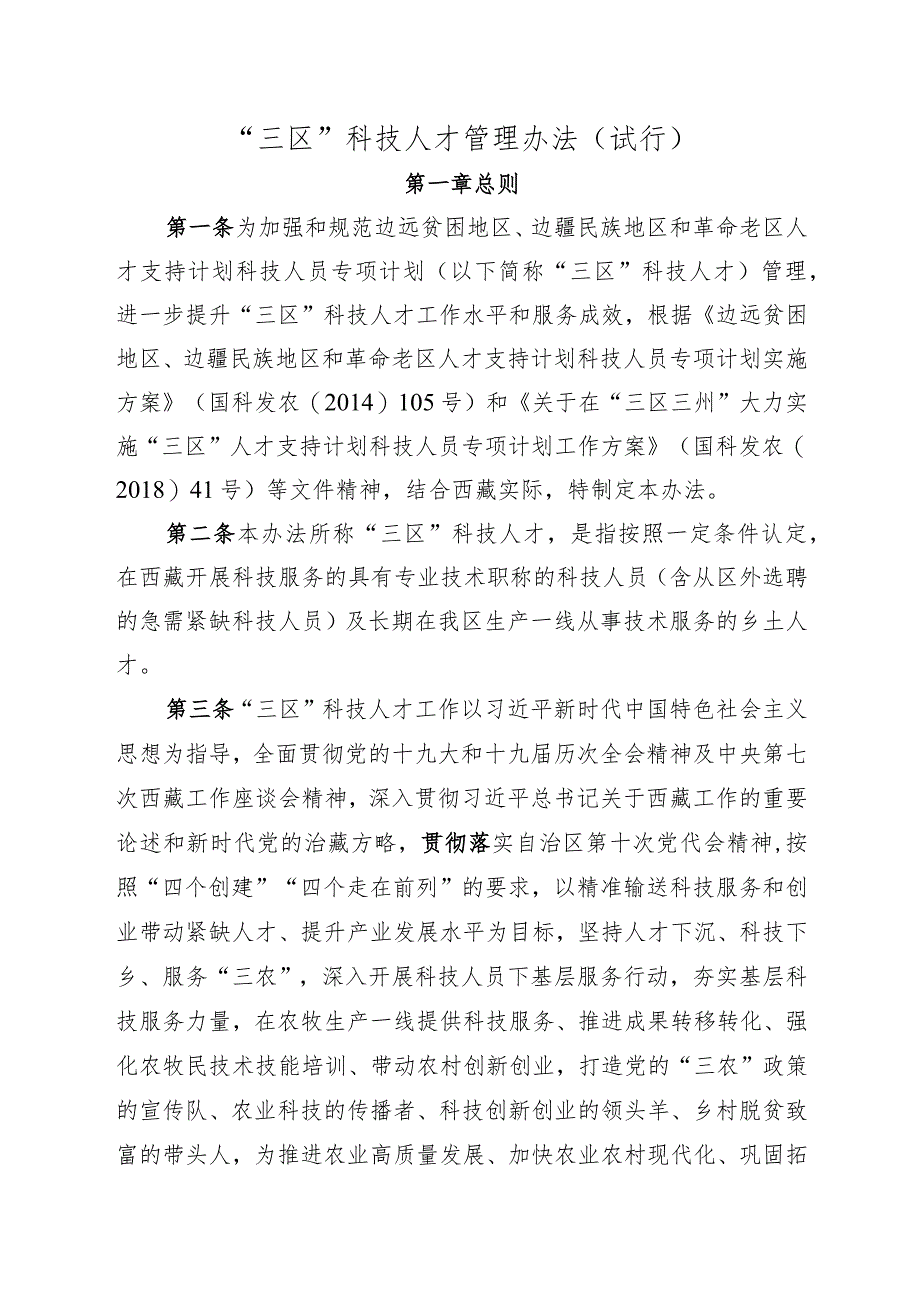 “三区”科技人才管理办法（试行）
第一章总则
第一条为加强和规范边远贫困地区、边疆民族地区和革命老区人
才支持计划科技人员专项计划（以下简称“三区”科技人才）管理，
进一步提升“三区”科技人才工作水平和服务成效，根据《边远贫困
地区、边疆民族地区和革命老区人才支持计划科技人员专项计划实施
方案》（国科发农（2014）105号）和《关于在“三区三州”大力实
施“三区”人才支持计划科技人员专项计划工作方案》（国科发农（
2018）41号）等文件精神，结合西藏实际，特制定本办法。
第二条本办法所称“三区”科技人才，是指按照一定条件认定，
在西藏开展科技服务的具有专业技术职称的科技人员（含从区外选聘
的急需紧缺科技人员）及长期在我区生产一线从事技术服务的乡土人
才。
第三条“三区”科技人才工作以习近平新时代中国特色社会主义
思想为指导，全面贯彻党的十九大和十九届历次全会精神及中央第七
次西藏工作座谈会精神，深入贯彻习近平总书记关于西藏工作的重要
论述和新时代党的治藏方略，贯彻落实自治区第十次党代会精神,按
照“四个创建”“四个走在前列”的要求，以精准输送科技服务和创
业带动紧缺人才、提升产业发展水平为目标，坚持人才下沉、科技下
乡、服务“三农”，深入开展科技人员下基层服务行动，夯实基层科
技服务力量，在农牧生产一线提供科技服务、推进成果转移转化、强
化农牧民技术技能培训、带动农村创新创业，打造党的“三农”政策
的宣传队、农业科技的传播者、科技创新创业的领头羊、乡村脱贫致
富的带头人，为推进农业高质量发展、加快农业农村现代化、巩固拓